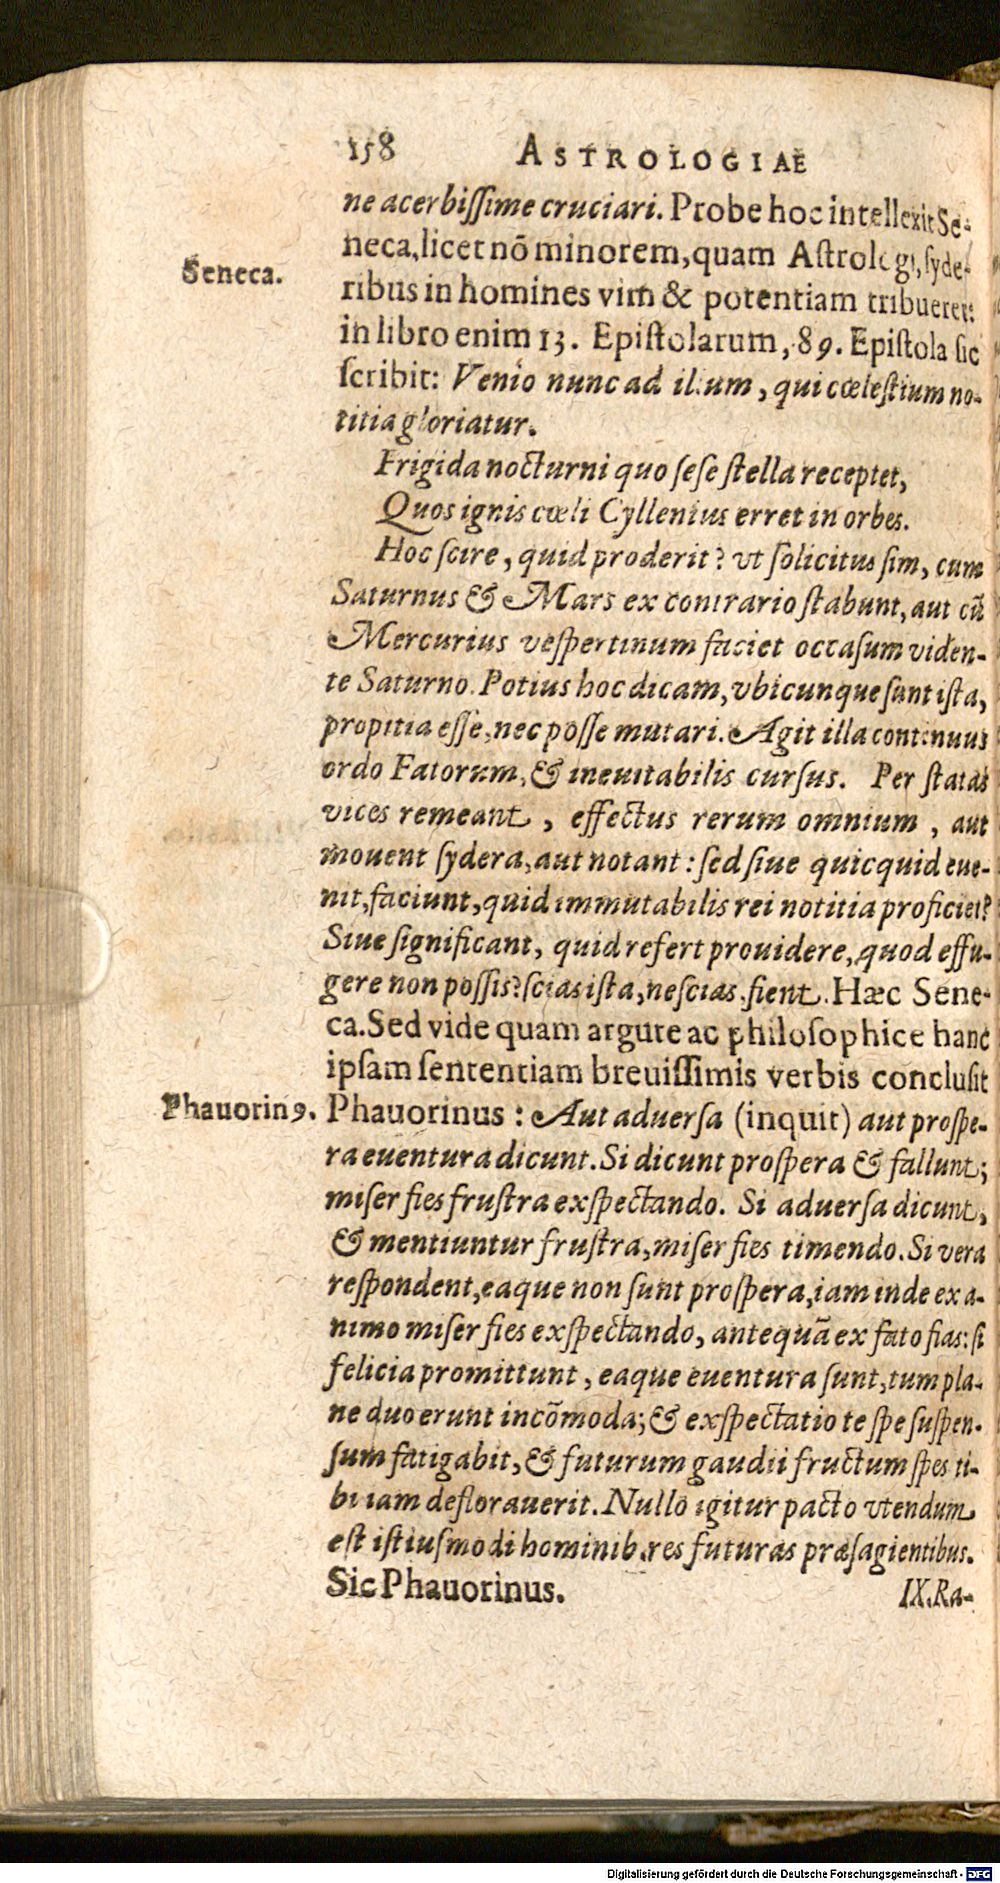 158 ASTROLOGIAE
ne acerbiſſime cruciari. Probe hoc intellexit Se-
Seneca.
neca, licet nõ minorem, quam Aſtrologi, ſyde-
ribus in homines vim & potentiam tribueret:
in libro enim 13. Epiſtolarum, 89. Epiſtola ſic
ſcribit: Venio nunc ad illum, qui cœleſtium no-
titia gloriatur.
Frigida nocturni quo ſeſe ſtella receptet,
Quos ignis cœli Cyllenius erret in orbes.
Hoc ſcire, quid proderit? vt ſolicitus ſim, cum
Saturnus & Mars ex contrario ſtabunt, aut cũ
Mercurius veſpertinum faciet occaſum viden-
te Saturno. Potius hoc dicam, vbicunque ſunt iſta,
propitia eſſe, nec poſſe mutari. Agit illa continuus
ordo Fatorum, & ineuitabilis curſus. Per ſtatas
vices remeant, effectus rerum omnium, aut
mouent ſydera, aut notant: ſed ſiue quicquid eue-
nit, faciunt, quid immutabilis rei notitia proficiet?
Siue ſignificant, quid refert prouidere, quod effu-
gere non poſſis? ſcias iſta, neſcias, fient. Hæc Sene-
ca. Sed vide quam argute ac philoſophice hanc
ipſam ſententiam breuiſſimis verbis concluſit
Phauorin9.
Phauorinus: Aut aduerſa (inquit) aut proſpe-
ra euentura dicunt. Si dicunt proſpera & fallunt;
miſer fies fruſtra exſpectando. Si aduerſa dicunt,
& mentiuntur fruſtra, miſer fies timendo. Si vera
reſpondent, eaque non ſunt proſpera, iam inde ex a-
nimo miſer fies exſpectando, antequã ex fato fias: ſi
felicia promittunt, eaque euentura ſunt, tum pla-
ne duo erunt incõmoda; & exſpectatio te ſpe ſuſpen-
ſum fatigabit, & futurum gaudii fructum ſpes ti-
bi iam deflorauerit. Nullo igitur pacto vtendum
eſt iſtiuſmodi hominib. res futuras præſagientibus.
Sic Phauorinus.
IX. Ra-
Digitalisierung gefördert durch die Deutsche Forschungsgemeinschaft - DFG